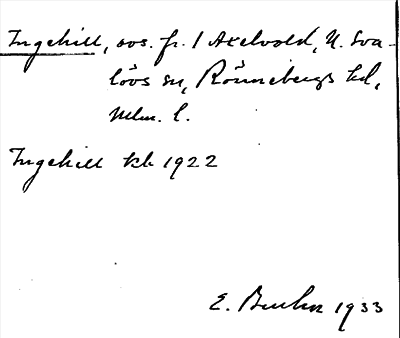 Ingehill, avs. fr. 1 Axelvold, N. Sva-
lövs sn, Rönnebergs hd,
Mlm. l.
Ingehill kb 1922
E. 1933